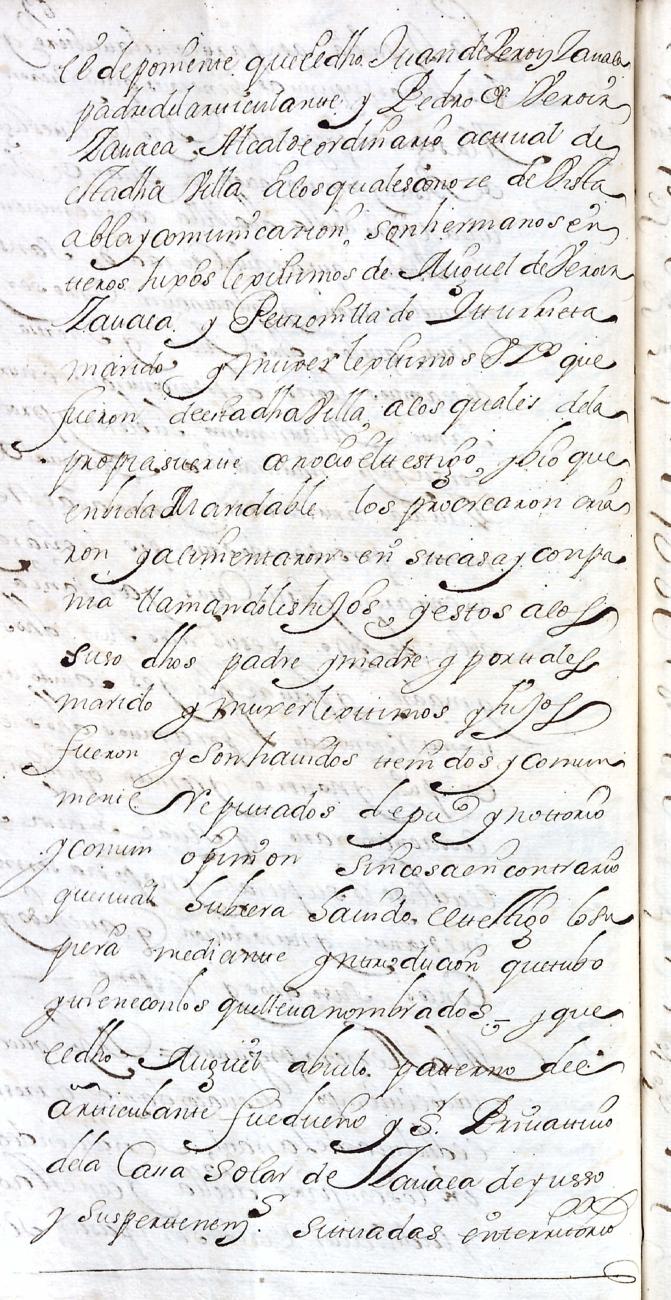 el deponente que el dho Juan de Veroiz Zavala
padre del articulante y Pedro de Veroiz
Zavala Alcalde ordinario actual de
esta dha Villa a los quales conoze de Vista
abla y comunicazion, son hermanos en
tteros hixos lexitimos de Miguel de Veroiz
Zavala y Pettronilla de Itturrieta
marido y muxer lexitimos Vzos que
fueron de esta dha Villa, a los quales de la
propia suerte conocio el ttestigo, y bio que
en bida Maridable los procrearon cria
ron y alimentaron en su casa y compa
nia llamandoles hijos y estos a los
suso dhos padre y madre y por tales
marido y muxer lexittimos y hijos
fueron y son havidos ttenidos y comun
mente Reputados de puco y nottorio
y comun opinion sin cosa en contrario
que si tal hubiera havido el ttestigo lo su
piera mediante ynttroducion que tubo
y tiene con los que lleva nombrados = y que
el dho Miguel abuelo patterno del
articulante fue dueño y Sr. Privattivo
de la Casa Solar de Zavala de yusso
y sus perttenens situadas en territorio